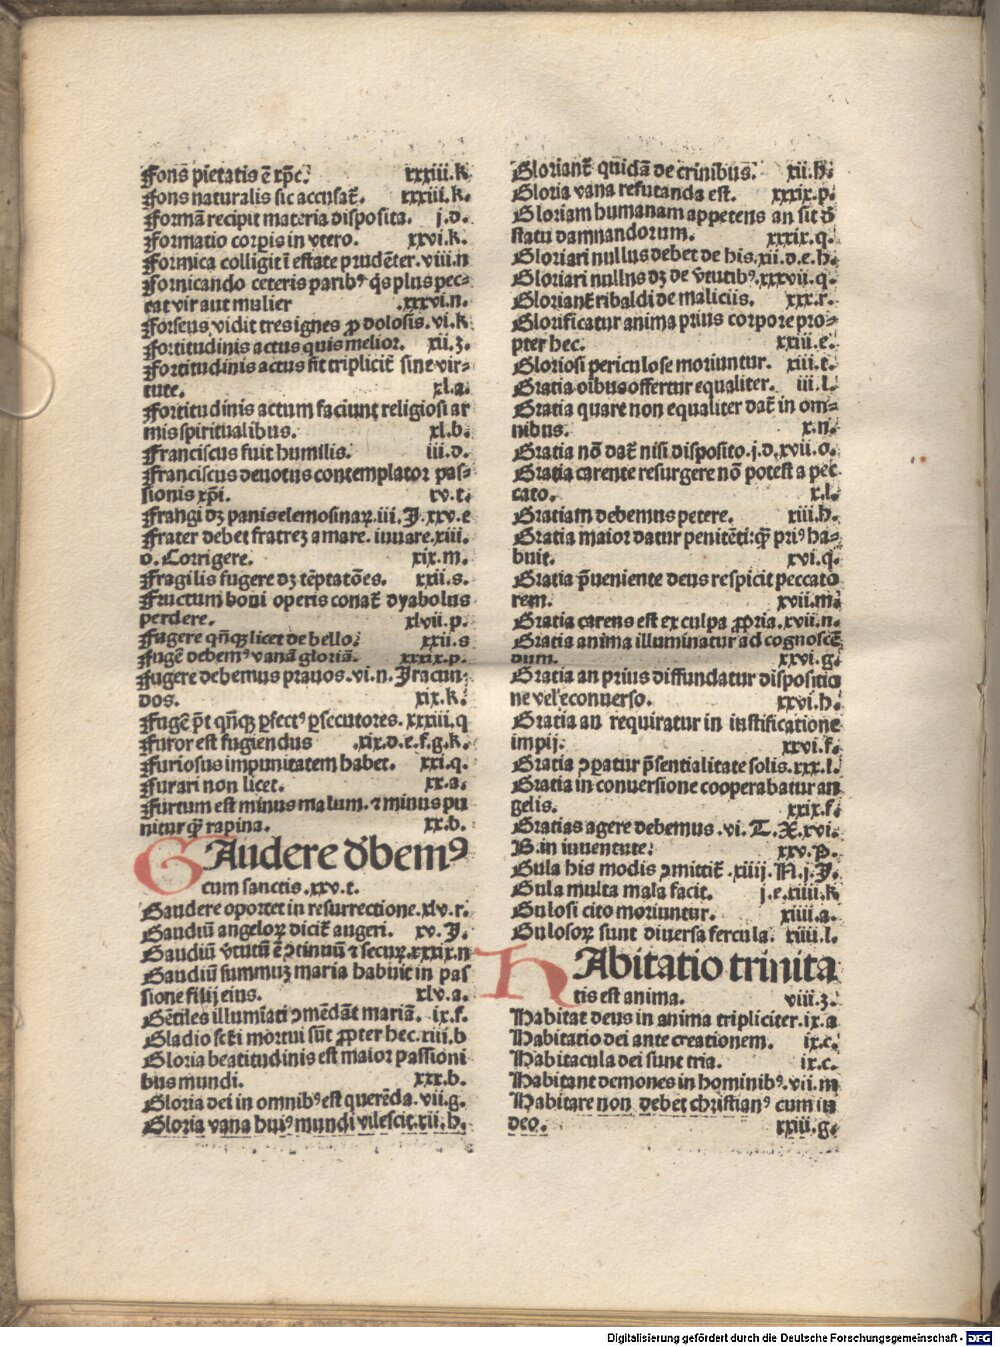 Fons pietatis ē xp̄c. xxxiii.k.
Fons naturalis sic accusat̄. xxxiii.k.
Formā recipit materia disposita. j.d.
Formatio corpis in vtero. xxvi.k.
Formica colligit ī estate prudēter. viii.n
Fornicando ceteris paribꝰ q̇s plus pec-
cat vir aut mulier .xxxvi.n.
Forseus vidit tres ignes ꝓ dolosis. vi.k
Fortitudinis actus quis melior. xii.z.
Fortitudinis actus fit triplicit̄ sine vir-
tute. xl.a.
Fortitudinis actum faciunt religiosi ar
mis spiritualibus. xl.b.
Franciscus fuit humilis. iii.d.
Franciscus deuotus contemplator pas-
sionis xp̄i. xv.t.
Frangi dꝫ panis elemosinaꝝ. iii. J. xxv.e
Frater debet fratreꝫ amare. iuuare. xiii.
o. Corrigere. xix.m.
Fragilis fugere dꝫ tēptatōes. xxii.s.
Fructum boni operis conat̄ dyabolus
perdere. xlvii.p.
Fugere qn̄qꝫ licet de bello. xxii.s
Fugē debemꝰ vanā gloriā. xxxix.p.
Fugere debemus prauos. vi.n. Jracun-
dos. xix.k.
Fugē p̄t qn̄qꝫ ꝑfectꝰ ꝑsecutores. xxxiii.q
Furor est fugiendus .xix.d.e.f.g.k.
Furiosus impunitatem habet. xxi.q.
Furari non licet. xx.a.
Furtum est minus malum. ⁊ minus pu
nitur qꝫ̄ rapina. xx.b.
GAudere dꝫbemꝰ
cum sanctis. xxv.t.
Gaudere oportet in resurrectione. xlv.r.
Gaudiū angeloꝝ dicit̄ augeri. xv.J.
Gaudiū v̄tutū ē ↄtinuū ⁊ secuꝝ. xxxix.n
Gaudiū summuꝫ maria habuit in pas
sione filij eius. xlv.a.
Gētiles illumīati ↄmēdāt mariā. ix.f.
Gladio sct̄i mortui sūt ꝓpter hec. xiii.b
Gloria beatitudinis est maior passioni
bus mundi. xxx.b.
Gloria dei in omnibꝰ est querēda. vii.g.
Gloria vana huiꝰ mundi vilescit. xii.h.
Gloriant̄ quidā de crinibus. xii.h.
Gloria vana refutanda est. xxxix.p.
Gloriam humanam appetens an sit d̄
statu damnandorum. xxxix.q.
Gloriari nullus debet de his. xii.d.e.h.
Gloriari nullns dꝫ de v̄tutibꝰ. xxxvii.q.
Gloriant̄ ribaldi de maliciis. xxx.r.
Glorificatur anima prius corpore pro-
pter hec. xxiii.e.
Gloriosi periculose moriuntur. xiii.t.
Gratia oībus offertur equaliter. iii.l.
Gratia quare non equaliter dat̄ in om-
nibus. x.n.
Gratia nō dat̄ nisi disposito. j.d. xvii.o.
Gratia carente resurgere nō potest a pec
cato. x.l.
Gratiam debemus petere. xiii.h.
Gratia maior datur penitēti: qꝫ̄ priꝰ ha-
buit. xvi.q.
Gratia p̄ueniente deus respicit peccato
rem. xvii.m.
Gratia carens est ex culpa ꝓpria. xvii.n.
Gratia anima illuminatur ad cognoscē
dum. xxvi.g.
Gratia an prius diffundatur dispositio
ne vel econuerso. xxvi.h.
Gratia an requiratur in iustificatione
impij. xxvi.f.
Gratia ↄꝑatur p̄sentialitate solis. xxx.l.
Gratia in conuersione cooperabatur an
gelis. xxix.f.
Gratias agere debemus. vi. T. X. xvi.
B. in iuuentute. xxv.P.
Gula his modis ↄmittit̄. xiiij. N. j. J.
Gula multa mala facit. j.e. xiiii.k
Gulosi cito moriuntur. xiiii.a.
Gulosoꝝ sunt diuersa fercula. xiiii.l.
HAbitatio trinita
tis est anima. viii.z.
Habitat deus in anima tripliciter. ix.a
Habitatio dei ante creationem. ix.c.
Habitacula dei sunt tria. ix.c.
Habitant demones in hominibꝰ. vii.m
Habitare non debet christianꝰ cum iu
deo. xxiii.g.
Digitalisierung gefördert durch die Deutsche Forschungsgemeinschaft - DFG